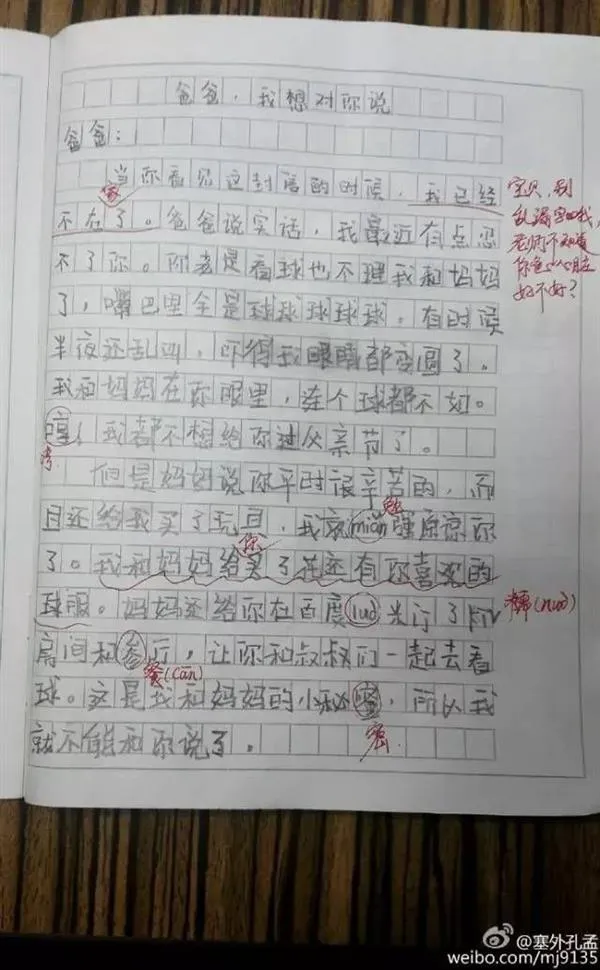 爸爸，我想对你说
爸爸：
当你看见这封信的时候，我已经
家
不在了。爸爸说实话，我最近有点忍
不了你。你老是看球也不理我和妈妈
了，嘴巴里全是球球球球球。有时候
半夜还乱叫，吓得我眼睛都变圆了。
我和妈妈在你眼里，连个球都不如。
哼！我都不想给你过父亲节了。
但是妈妈说你平时很辛苦的，而
勉
且还给我买了玩具，我就mián强原谅你
你
了。我和妈妈给买了花还有你喜欢的
球服。妈妈还给你在百度luo米订了
房间和参厅，让你和叔叔们一起去看
餐(cān)
球。这是我和妈妈的小秘蜜，所以我
密
就不能和你说了。
宝贝，别
乱漏字
老师不知道
你爸心脏
好不好？
糯(nuò)
@塞外孔孟
weibo.com/mj9135